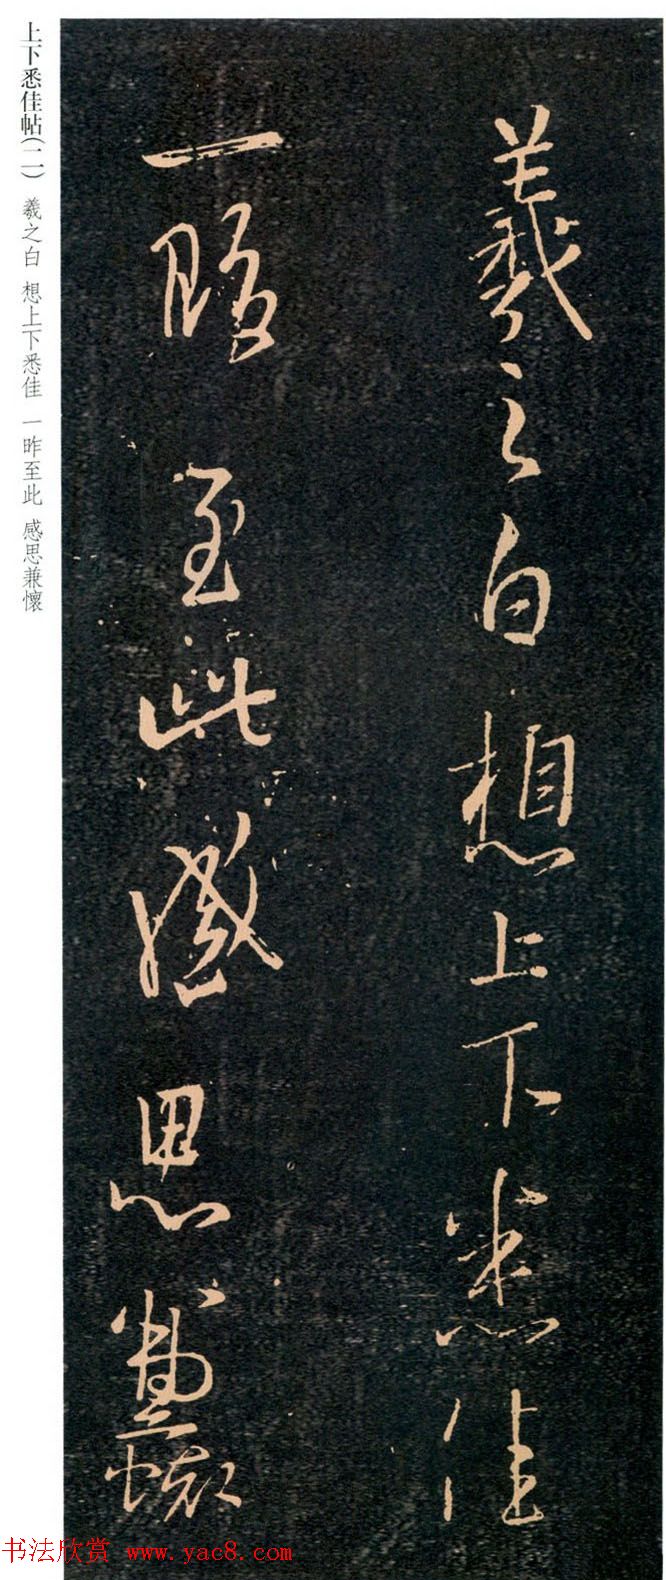 羲之白想上下悉佳
一昨至此感思兼懷
上下悉佳帖(二) 羲之白 想上下悉佳 一昨至此 感思兼懷
书法欣赏 www.yac8.com